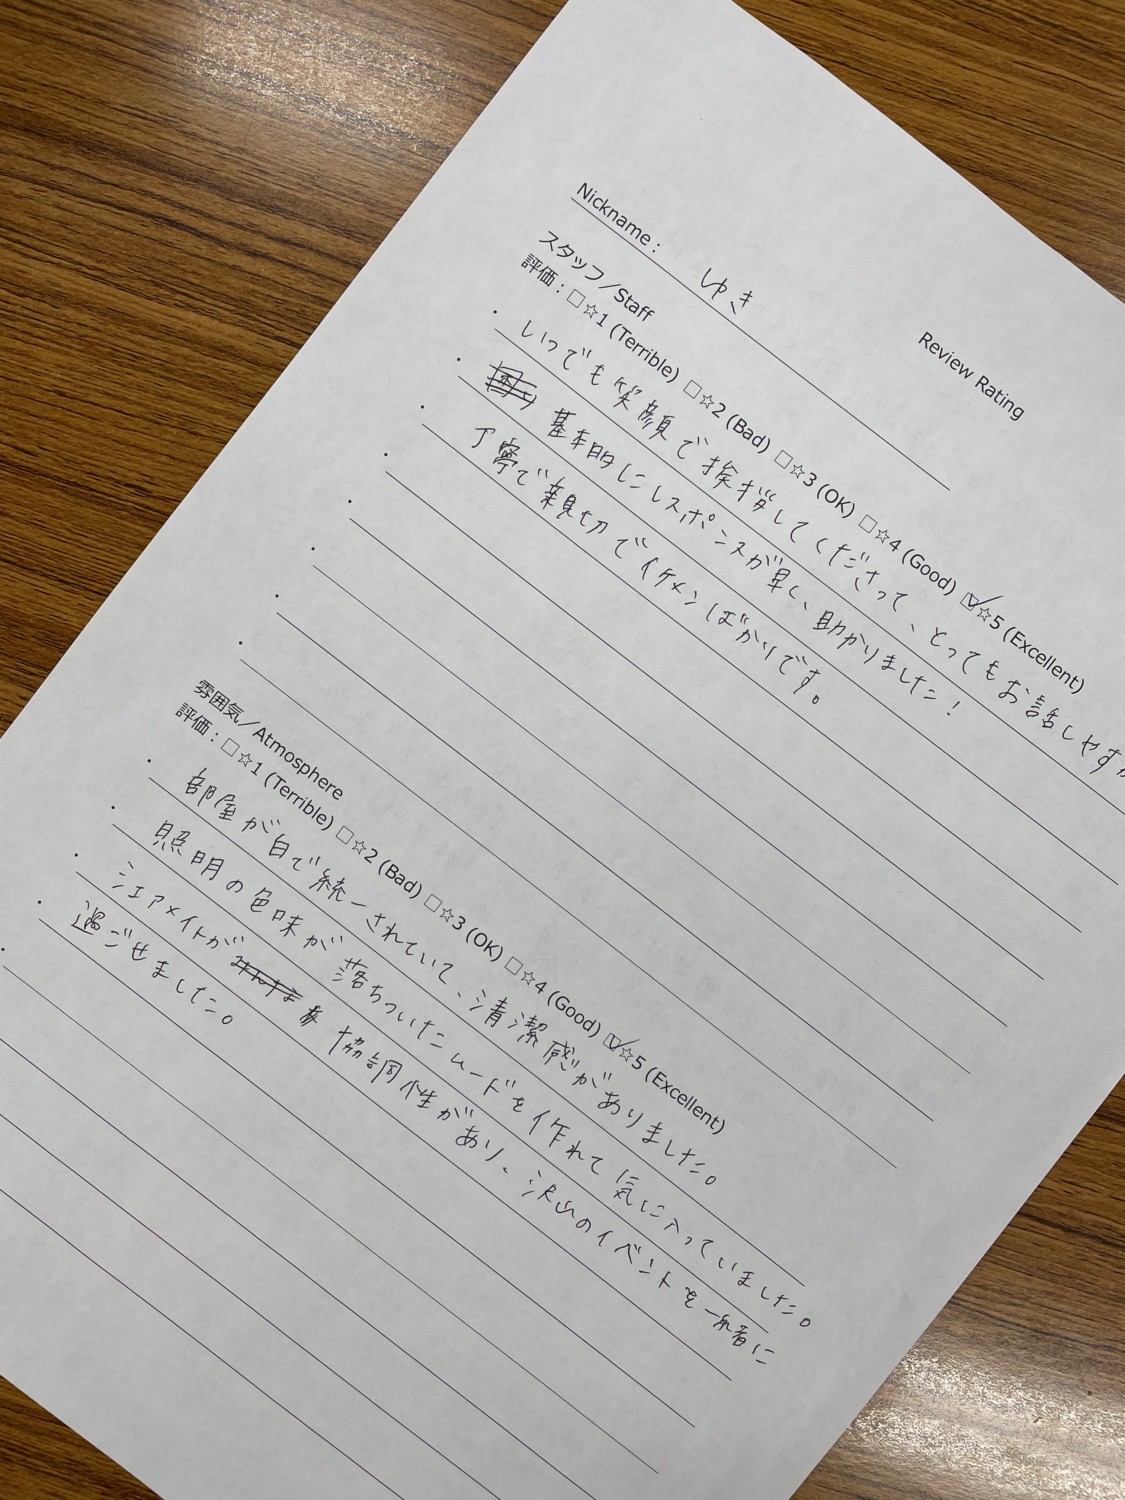 Review Rating
Nickname： ゆき
スタッフ／Staff
評価：□☆1 (Terrible) □☆2 (Bad) □☆3 (OK) □☆4 (Good) ☑☆5 (Excellent)
・いつでも笑顔で挨拶してくださって、とってもお話しやすか
・基本的にレスポンスが早く、助かりました！
・丁寧で親切でイケメンばかりです。
・
・
・
・
・
雰囲気／Atmosphere
評価：□☆1 (Terrible) □☆2 (Bad) □☆3 (OK) □☆4 (Good) ☑☆5 (Excellent)
・部屋が白で統一されていて、清潔感がありました。
・照明の色味が落ちついたムードを作れて気に入っていました。
・シェアメイトが 協調性があり、沢山のイベントを一緒に
・過ごせました。
・